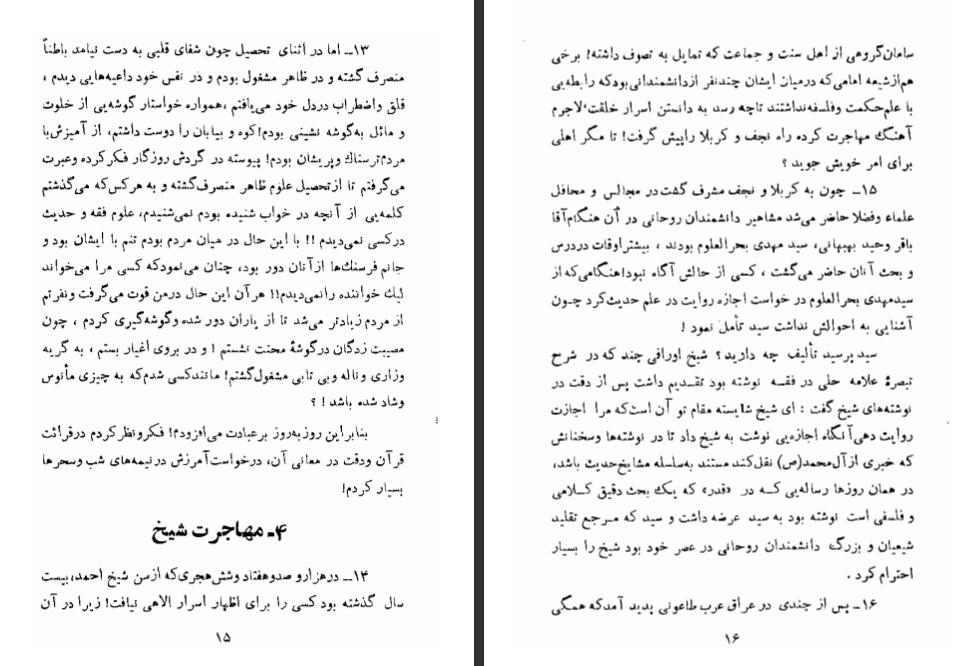 ۱۳ــ اما در اثنای تحصیل چون شفای قلبی به دست نیامد باطناً
منصرف گشته و در ظاهر مشغول بودم و در نفس خود داعیه‌هایی دیدم ،
قلق واضطراب دردل خود می‌یافتم ،همواره خواستار گوشه‌یی از خلوت
و مائل به‌گوشه نشینی بودم!کوه و بیابان را دوست داشتم، از آمیزش‌با
مردم‌ترسناك وپریشان بودم! پیوسته در گردش روزگار فکرکرده وعبرت
می‌گرفتم تا ازتحصیل علوم ظاهر منصرف‌گشته و به هرکس‌که می‌گذشتم
کلمه‌یی از آنچه در خواب شنیده بودم نمی‌شنیدم، علوم فقه و حدیث
درکسی نمی‌دیدم !! با این حال در میان مردم بودم تنم با ایشان بود و
جانم فرسنك‌ها ازآنان دور بود، چنان می‌نمودکه کسی مرا می‌خواند
لیك خواننده رانمی‌دیدم!! هرآن این حال درمن قوت می‌گرفت ونفرتم
از مردم زیادتر می‌شد تا از یاران دور شده وگوشه‌گیری کردم ، چون
مصیبت زدگان درگوشهٔ محنت نشستم ! و در بروی اغیار بستم ، به گریه
وزاری و ناله وبی تابی مشغول‌گشتم! مانندکسی شدم‌که به چیزی مأنوس
وشاد شده باشد ! ؟
بنابراین روزبه‌روز برعبادت می‌افزودم! فکرونظرکردم درقرائت
قرآن ودقت در معانی آن، درخواست‌آمرزش درنیمه‌های شب وسحرها
بسیار کردم!
۴ـ مهاجرت شیخ
۱۴ــ درهزارو صدوهفتاد وشش‌هجری‌که ازسن شیخ احمد، بیست
سال گذشته بود کسی را برای اظهار اسرار الاهی نیافت! زیرا در آن
۱۵
سامان‌گروهی از اهل سنت و جماعت که تمایل به تصوف داشته! برخی
هم‌ازشیعه امامی‌که درمیان ایشان چندنفر ازدانشمندانی‌بودکه رابطه‌یی
با علم‌حکمت وفلسفه‌نداشتند تاچه رسد به دانستن اسرار خلقت، لاجرم
آهنگ مهاجرت کرده راه نجف و کربلا راپیش گرفت! تا مگر اهلی
برای امر خویش جوید ؟
۱۵ــ چون به کربلا و نجف مشرف گشت در مجالس و محافل
علماء وفضلا حاضر می‌شد مشاهیر دانشمندان روحانی در آن هنگام‌آقا
باقر وحید بهبهانی، سید مهدی بحرالعلوم بودند ، بیشتراوقات دردرس
و بحث آنان حاضر می‌گشت ، کسی از حالش آگاه نبود!هنگامی‌که از
سیدمهدی بحرالعلوم در خواست اجازه روایت در علم حدیث‌کرد چون
آشنایی به احوالش نداشت سید تأمل نمود !
سید پرسید تألیف چه دارید؟ شیخ اوراقی چند که در شرح
تبصرهٔ علامه حلی در فقه نوشته بود تقدیم داشت پس از دقت در
نوشته‌های شیخ گفت : ای شیخ شایسته مقام تو آن است‌که مرا اجازت
روایت دهی‌آنگاه اجازه‌یی نوشت به شیخ داد تا در نوشته‌ها وسخنانش
که خبری ازآل‌محمد(ص) نقل‌کند مستند به‌سلسله مشایخ‌حدیث باشد،
در همان روزها رساله‌یی که در «قدر» که یك بحث دقیق کلامی
و فلسفی است نوشته بود به سید عرضه داشت و سید که مرجع تقلید
شیعیان و بزرگ دانشمندان روحانی در عصر خود بود شیخ را بسیار
احترام کرد .
۱۶ــ پس از چندی در عراق عرب طاعونی پدید آمدکه همگی
۱۶